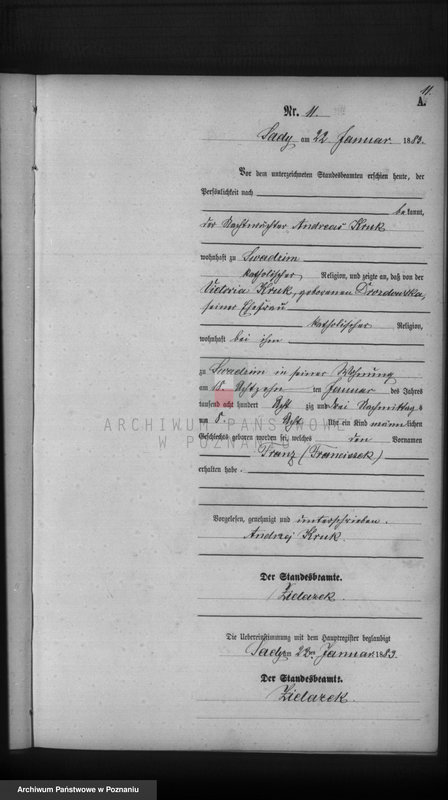 11.
A.
Nr. 11.
Sady am 22 Januar 1883.
Vor dem unterzeichneten Standesbeamten erschien heute, der
Persönlichkeit nach
bekannt,
der Nachtwächter Andreas Kruk
wohnhaft zu Swadzim
katholischer Religion, und zeigte an, daß von der
Victoria Kruk, geborenen Drozdowska,
seiner Ehefrau
katholischer Religion,
wohnhaft bei ihm
zu Swadzim in seiner Wohnung
am 18. Achtzehn ten Januar des Jahres
tausend acht hundert Acht zig und drei Nachmittags
um 8. Acht Uhr ein Kind männlichen
ARCHIWUM PAŃSTWOWE
W POZNANIU
Geschlechts geboren worden sei, welches den Vornamen
Franz (Franciszek)
erhalten habe.
Vorgelesen, genehmigt und unterschrieben.
Andrzej Kruk.
Der Standesbeamte.
Zielazek.
Die Uebereinstimmung mit dem Hauptregister beglaubigt
Sady am 22ten Januar 1883.
Der Standesbeamte.
Zielazek.
Archiwum Państwowe w Poznaniu